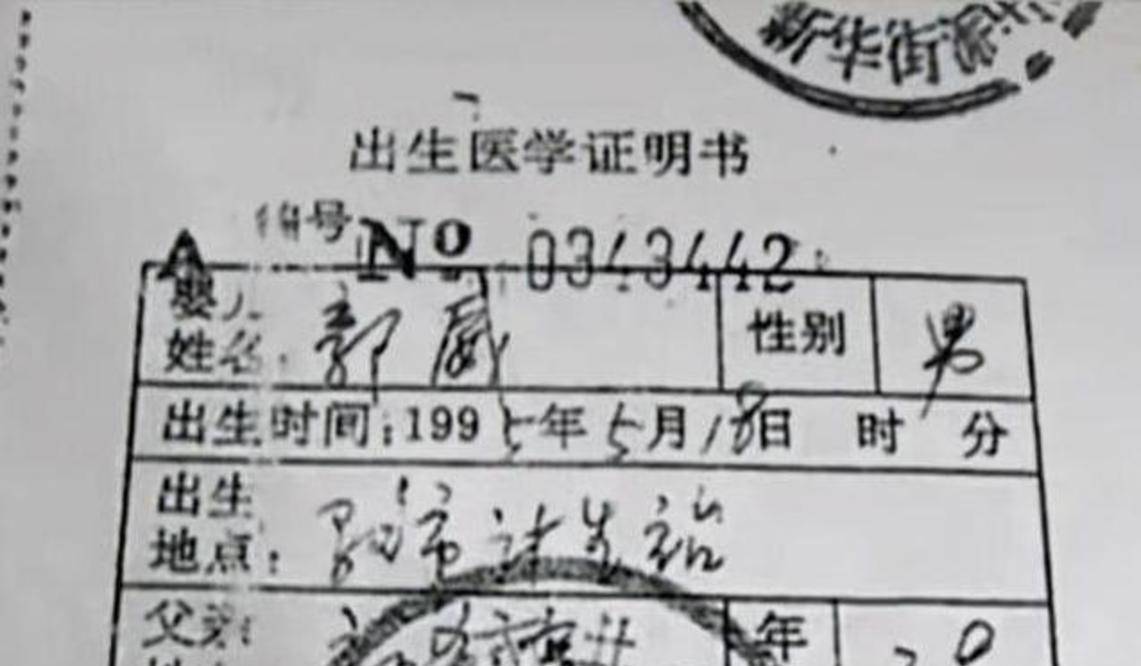 新华街派
出生医学证明书
编号 No 0343442
A
婴儿
姓名: 郭威 性别 男
出生时间:1995年5月18日 时 分
出生
地点:
父亲 年